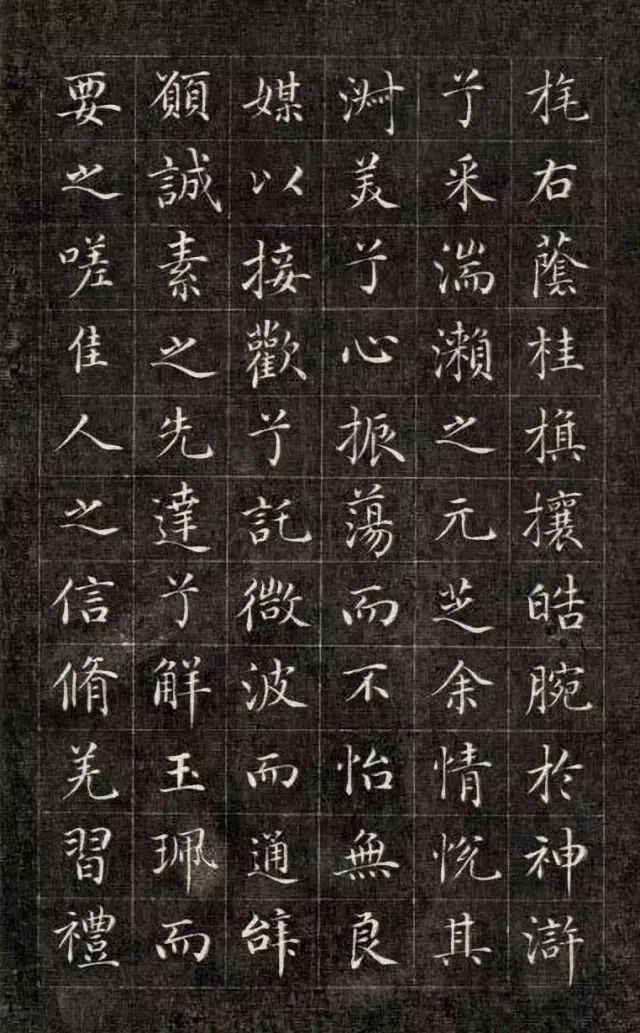 旄右蔭桂旗攘皓腕於神滸
兮采湍瀨之元芝余情悅其
淑美兮心振蕩而不怡無良
媒以接歡兮託微波而通辝
願誠素之先達兮解玉珮而
要之嗟佳人之信脩羌習禮